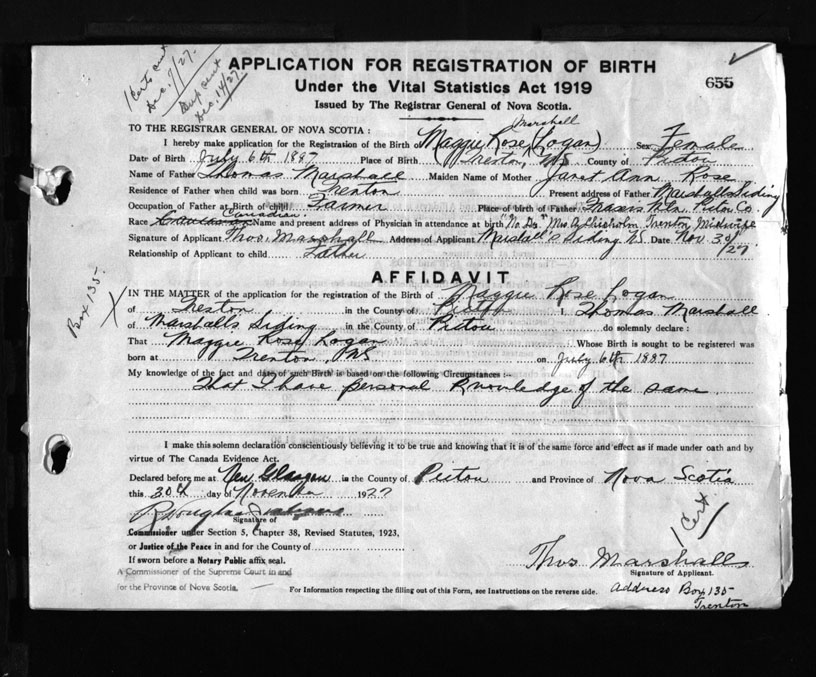 1 Cert sent
Dec. 9/27.
Dup sent
Dec. 14/27
APPLICATION FOR REGISTRATION OF BIRTH
655
Under the Vital Statistics Act 1919
Issued by The Registrar General of Nova Scotia.
TO THE REGISTRAR GENERAL OF NOVA SCOTIA :
Marshall
I hereby make application for the Registration of the Birth of Maggie Rose (Logan) Sex Female
Date of Birth July 6th 1887 Place of Birth Trenton, NS County of Pictou
Name of Father Thomas Marshall Maiden Name of Mother Janet Ann Rose
Residence of Father when child was born Trenton Present address of Father Marshalls Siding
Occupation of Father at Birth of child Farmer Place of birth of Father Frasers Mtn. Pictou Co
Canadian
Race Name and present address of Physician in attendance at birth "No Dr." Mrs D Chisholm Trenton Midwife
Signature of Applicant Thos. Marshall Address of Applicant Marshall's Siding NS Date Nov 30/27
Relationship of Applicant to child Father
AFFIDAVIT
Box 135.
IN THE MATTER of the application for the registration of the Birth of Maggie Rose Logan
of Trenton in the County of Pictou I, Thomas Marshall
of Marshalls Siding in the County of Pictou do solemnly declare :
That Maggie Rose Logan Whose Birth is sought to be registered was
born at Trenton, NS on July 6th 1887
My knowledge of the fact and date of such Birth is based on the following Circumstances :—
That I have personal Knowledge of the same.
I make this solemn declaration conscientiously believing it to be true and knowing that it is of the same force and effect as if made under oath and by
virtue of The Canada Evidence Act.
Declared before me at New Glasgow in the County of Pictou and Province of Nova Scotia
this 30th day of November 1927
R Douglas
Signature of
Commissioner under Section 5, Chapter 38, Revised Statutes, 1923,
1 Cert
or Justice of the Peace in and for the County of
If sworn before a Notary Public affix seal.
Thos Marshall
Signature of Applicant.
A Commissioner of the Supreme Court in and
for the Province of Nova Scotia.
For Information respecting the filling out of this Form, see Instructions on the reverse side.
Address Box 135
Trenton